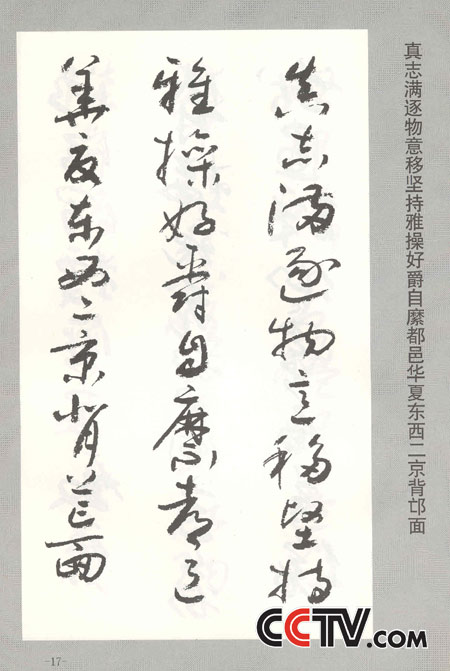 真志满逐物意移坚持雅操好爵自縻都邑华夏东西二京背邙面
真志滿逐物意移堅持
雅操好爵自縻都邑
華夏東西二京背芒面
-17-
CCTV.com